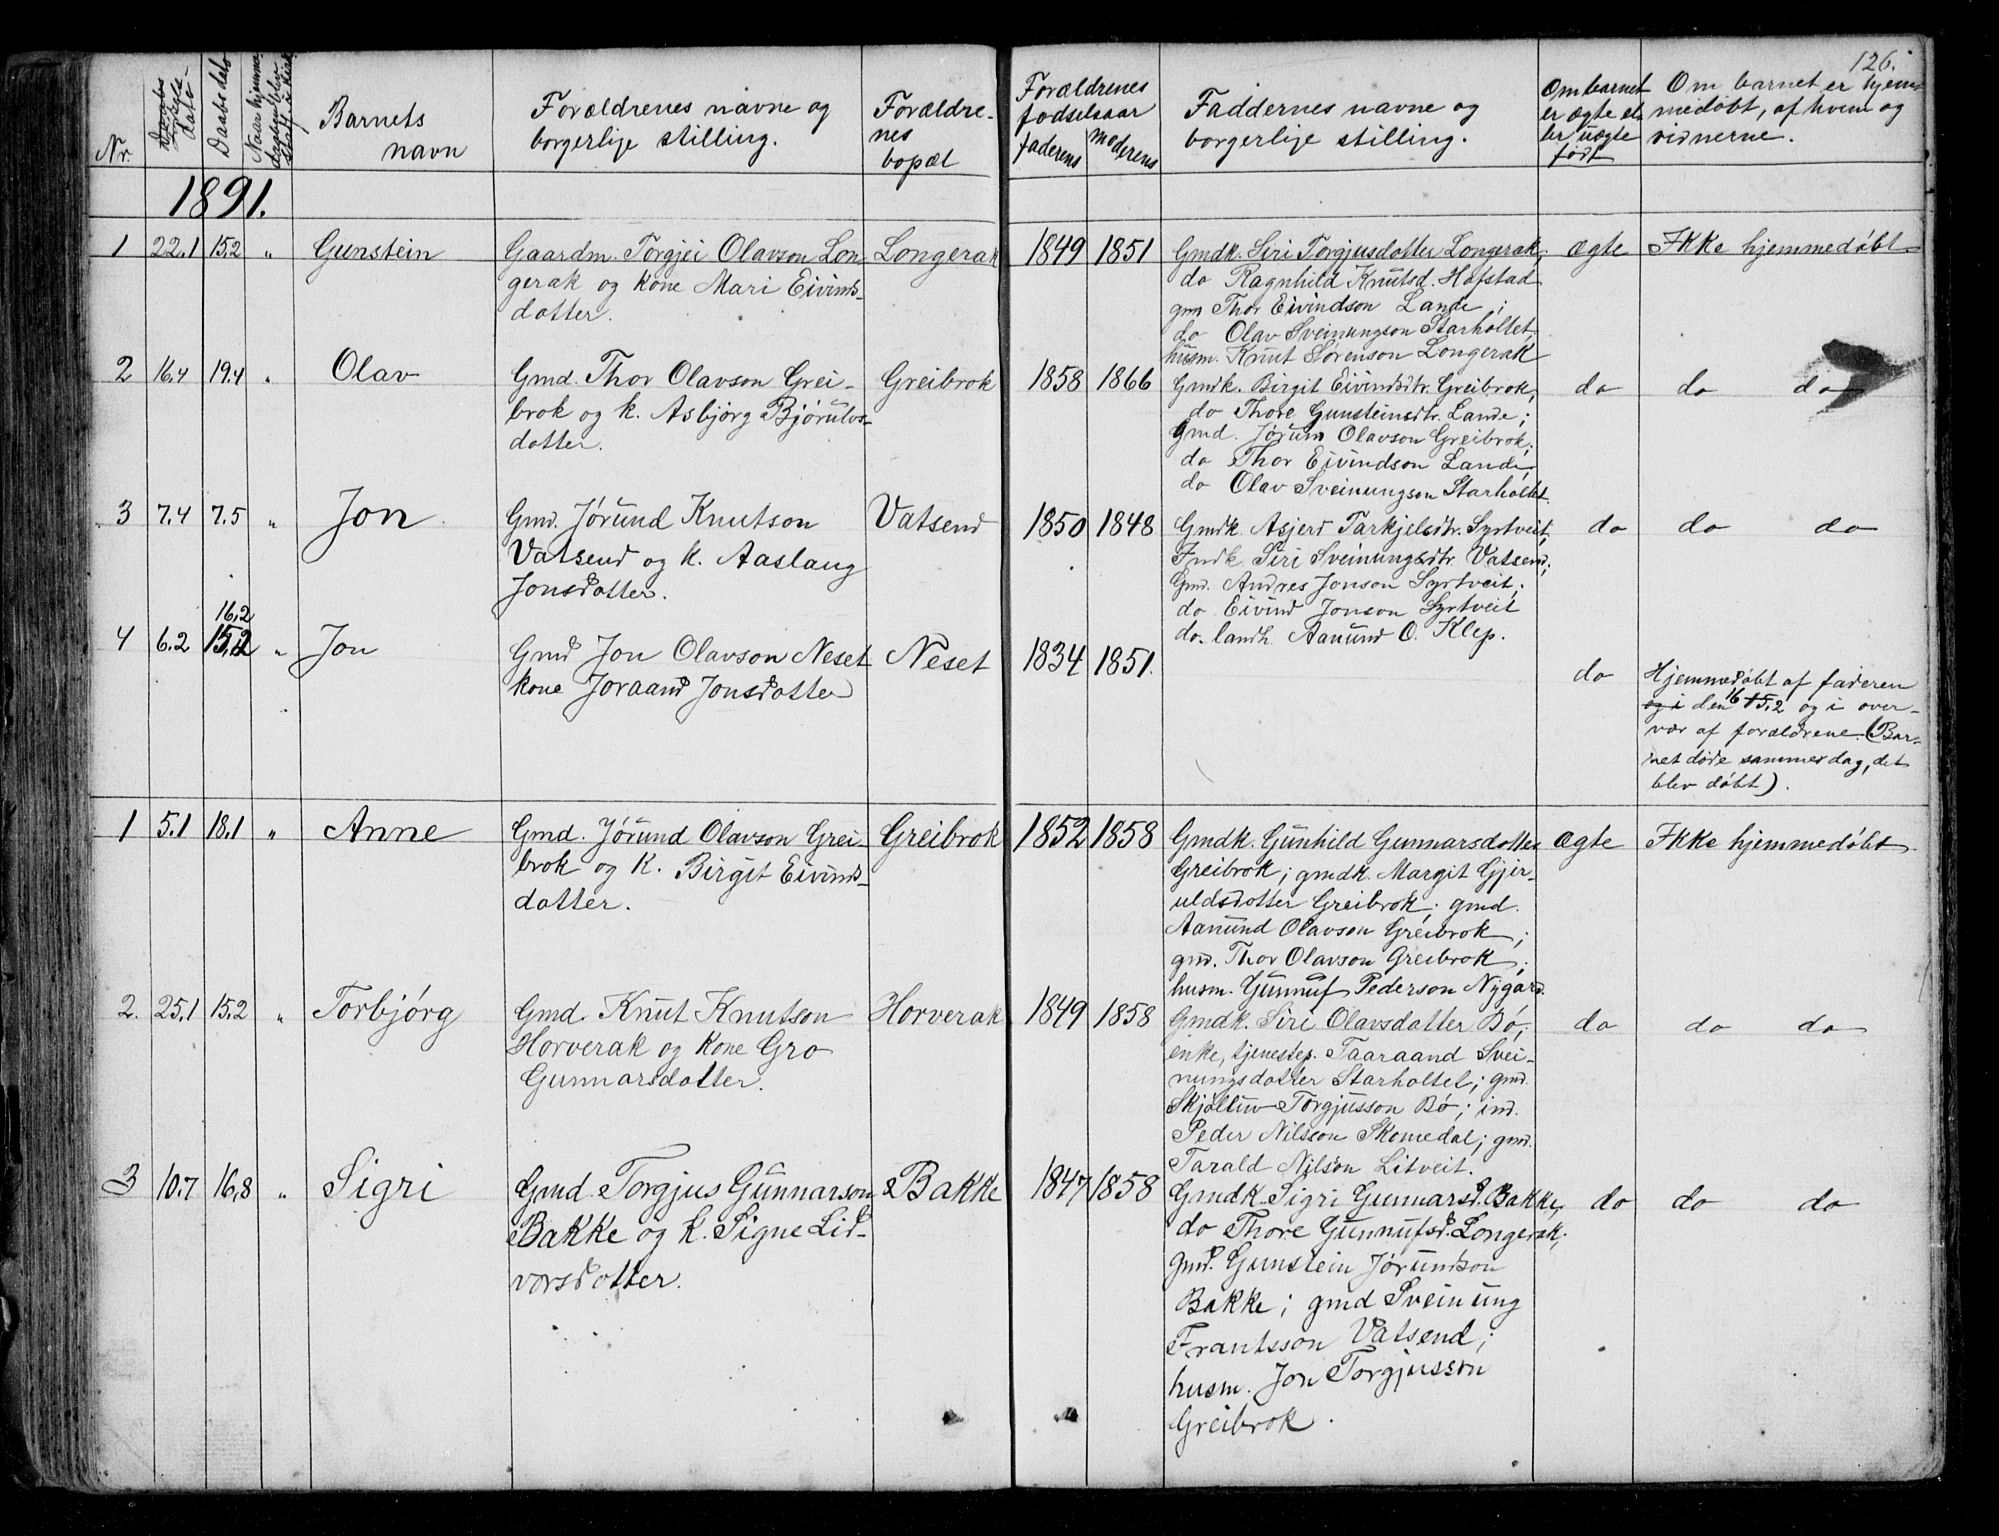 126.
Nr. Fødselsdato Daabsdato Barnets navn Forældrenes navne og borgerlige stilling. Forældrenes bopæl Forældrenes fødselsaar faderens moderens Faddernes navne og borgerlige stilling. Om barnet er ægte eller uægte født Om barnet er hjemmedøbt, af hvem og vidnerne.
1891.
1 22.1 15.2 " Gunstein Gaardm. Torgjei Olavson Lon- Longerak 1849 1851 Gmdk. Siri Torgjusdotter Longerak, ægte Ikke hjemmedøbt
gerak og kone Mari Eivinds- do Ragnhild Knutsd. Hofstad
dotter. gm Thor Eivindson Lande;
do Olav Sveinungson Starholtet,
husm. Knut Sørenson Longerak
2 16.4 19.4 " Olav Gmd. Thor Olavson Grei- Greibrok 1858 1866 Gmdk. Birgit Eivindsdtr. Greibrok, do do do
brok og k. Asbjørg Bjørulvs- do Thore Gunsteinsdtr. Lande;
dotter. Gmd. Jørun Olavson Greibrok;
do Thor Eivindson Lande,
do Olav Sveinungson Starholtet.
3 7.4 7.5 " Jon Gmd. Jørund Knutson Vatsend 1850 1848 Gmdk. Asjerd Tarkjelsdtr. Syrtveit, do do do
Vatsend og k. Aaslaug Indk. Siri Sveinungsdtr. Vatsend;
Jonsdotter. Gmd. Andres Jonson Syrtveit;
do Eivind Jonson Syrtveit
do. landh. Aanund O. Klep.
16,2
4 6.2 15,2 " Jon Gmd Jon Olavson Neset Neset 1834 1851. do Hjemmedøbt af faderen
kone Joraand Jonsdotter og i den 16 15.2 og i over-
vær af forældrene. (Bar-
net døde sammesdag, det
blev døbt).
1 5.1 18.1 " Anne Gmd. Jørund Olavson Grei- Greibrok 1852 1858 Gmdk. Gunhild Gunnarsdotter ægte Ikke hjemmedøbt.
brok og k. Birgit Eivinds- Greibrok; gmdk. Margit Gjer-
dotter. uldsdotter Greibrok; gmd.
Aanund Olavson Greibrok;
gmd. Thor Olavson Greibrok;
husm. Gunnuf Pederson Nygard.
2. 25.1 15.2 " Torbjørg Gmd. Knut Knutson Horverak 1849 1858 Gmdk. Siri Olavsdotter Bø; do do do
Horverak og kone Gro enke, tjenestep. Taaraand Svei-
Gunnarsdotter. nungsdotter Starholtet; gmd.
Skjøltuv Torgjusson Bø; ind.
Peder Nilsson Skomedal; gmd.
Tarald Nilson Litveit.
3 10.7 16,8 " Sigri Gmd. Torgjus Gunnarson Bakke 1847 1858 Gmdk. Sigri Gunnarsd. Bakke, do do do
Bakke og k. Signe Lid- do Thore Gunnufsd. Longerak;
vorsdotter. gmd. Gunstein Jørundson
Bakke; gmd Sveinung
Frantsson Vatsend;
husm. Jon Torgjusson
Greibrok.